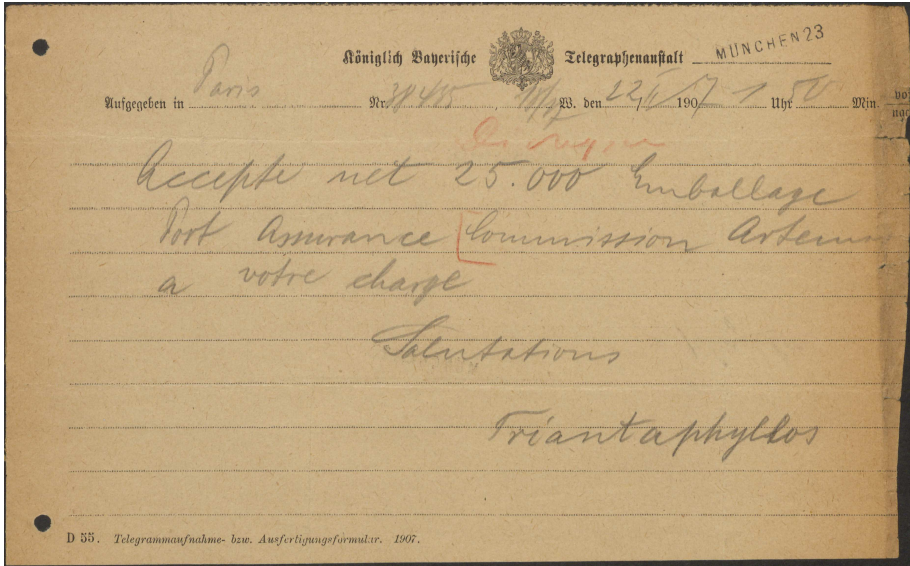 Königlich Bayerische Telegraphenanstalt MÜNCHEN 23
Aufgegeben in Paris Nr. 38485, W. den 22/ 1907 1 Uhr 50 Min. vo
Accepte net 25.000 Emballage
Port Assurance [Commission Artemis
a votre charge
Salutations
Triantaphyllos
D 55. Telegrammaufnahme- bzw. Ausfertigungsformular. 1907.